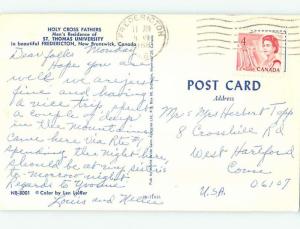 HOLY CROSS FATHERS
Men's Residence of
ST. THOMAS UNIVERSITY
in beautiful FREDERICTON, New Brunswick, Canada
Dear folks Monday
Hope you are
well we are just
fine and having
a nice trip spent
a couple of days
in the Mountains
Came here Via Rte
spending the night here
should be at my sister's
to-morrow night
Regards to Yvonne
Louis and Nellie
NB-3001 © Color by Len
FREDERICTON
4
CANADA
POST CARD
Address
Mr & Mrs Herbert Tapp
8 Crosshill Rd
West Hartford
Conn
U.S.A. 06107